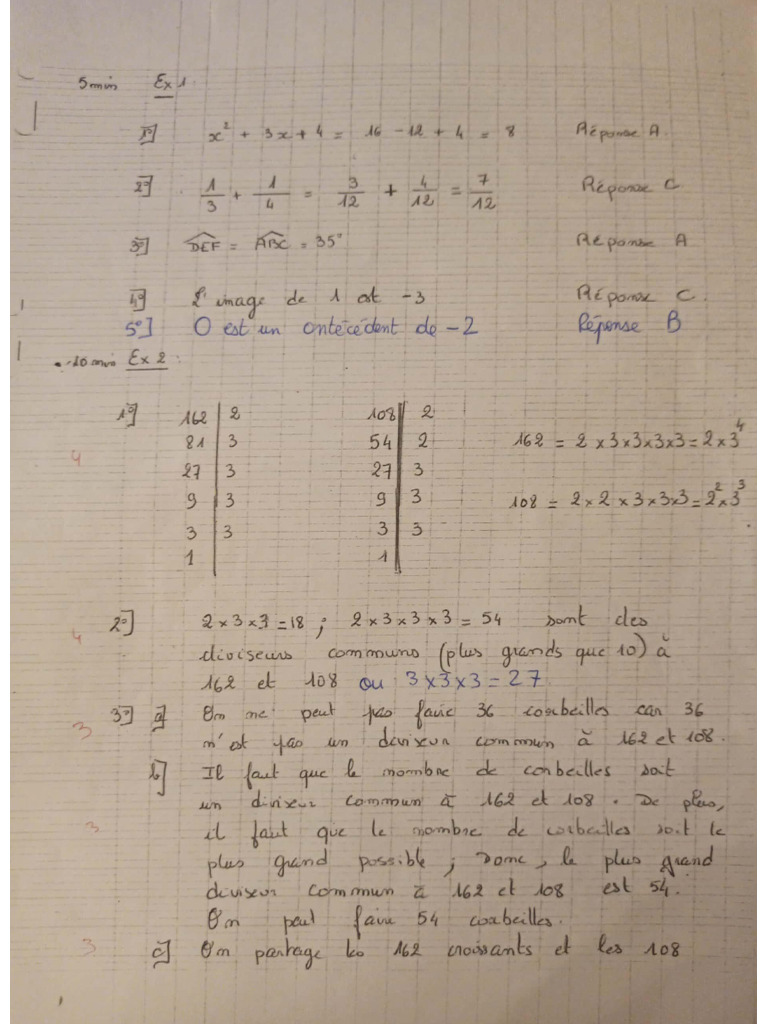 5min Ex 1
1°] x² + 3x + 4 = 16 - 12 + 4 = 8 Réponse A.
2°] 1/3 + 1/4 = 3/12 + 4/12 = 7/12 Réponse C
3°] DEF = ABC = 35° Réponse A
4°] L'image de 1 est -3 Réponse C.
5°] 0 est un antécédent de -2 Réponse B
10 min Ex 2 :
1°] 162 | 2 108 | 2
81 | 3 54 | 2 162 = 2 × 3 × 3 × 3 × 3 = 2 × 3⁴
4
27 | 3 27 | 3
9 | 3 9 | 3 108 = 2 × 2 × 3 × 3 × 3 = 2² × 3³
3 | 3 3 | 3
1 | 1 |
4 2°] 2 × 3 × 3 = 18 ; 2 × 3 × 3 × 3 = 54 sont des
diviseurs communs (plus grands que 10) à
162 et 108 ou 3 × 3 × 3 = 27
3 3°] a] On ne peut pas faire 36 corbeilles car 36
n'est pas un diviseur commun à 162 et 108.
b] Il faut que le nombre de corbeilles soit
un diviseur commun à 162 et 108. De plus,
3 il faut que le nombre de corbeilles soit le
plus grand possible ; Donc, le plus grand
diviseur commun à 162 et 108 est 54.
On peut faire 54 corbeilles.
3 c] On partage les 162 croissants et les 108